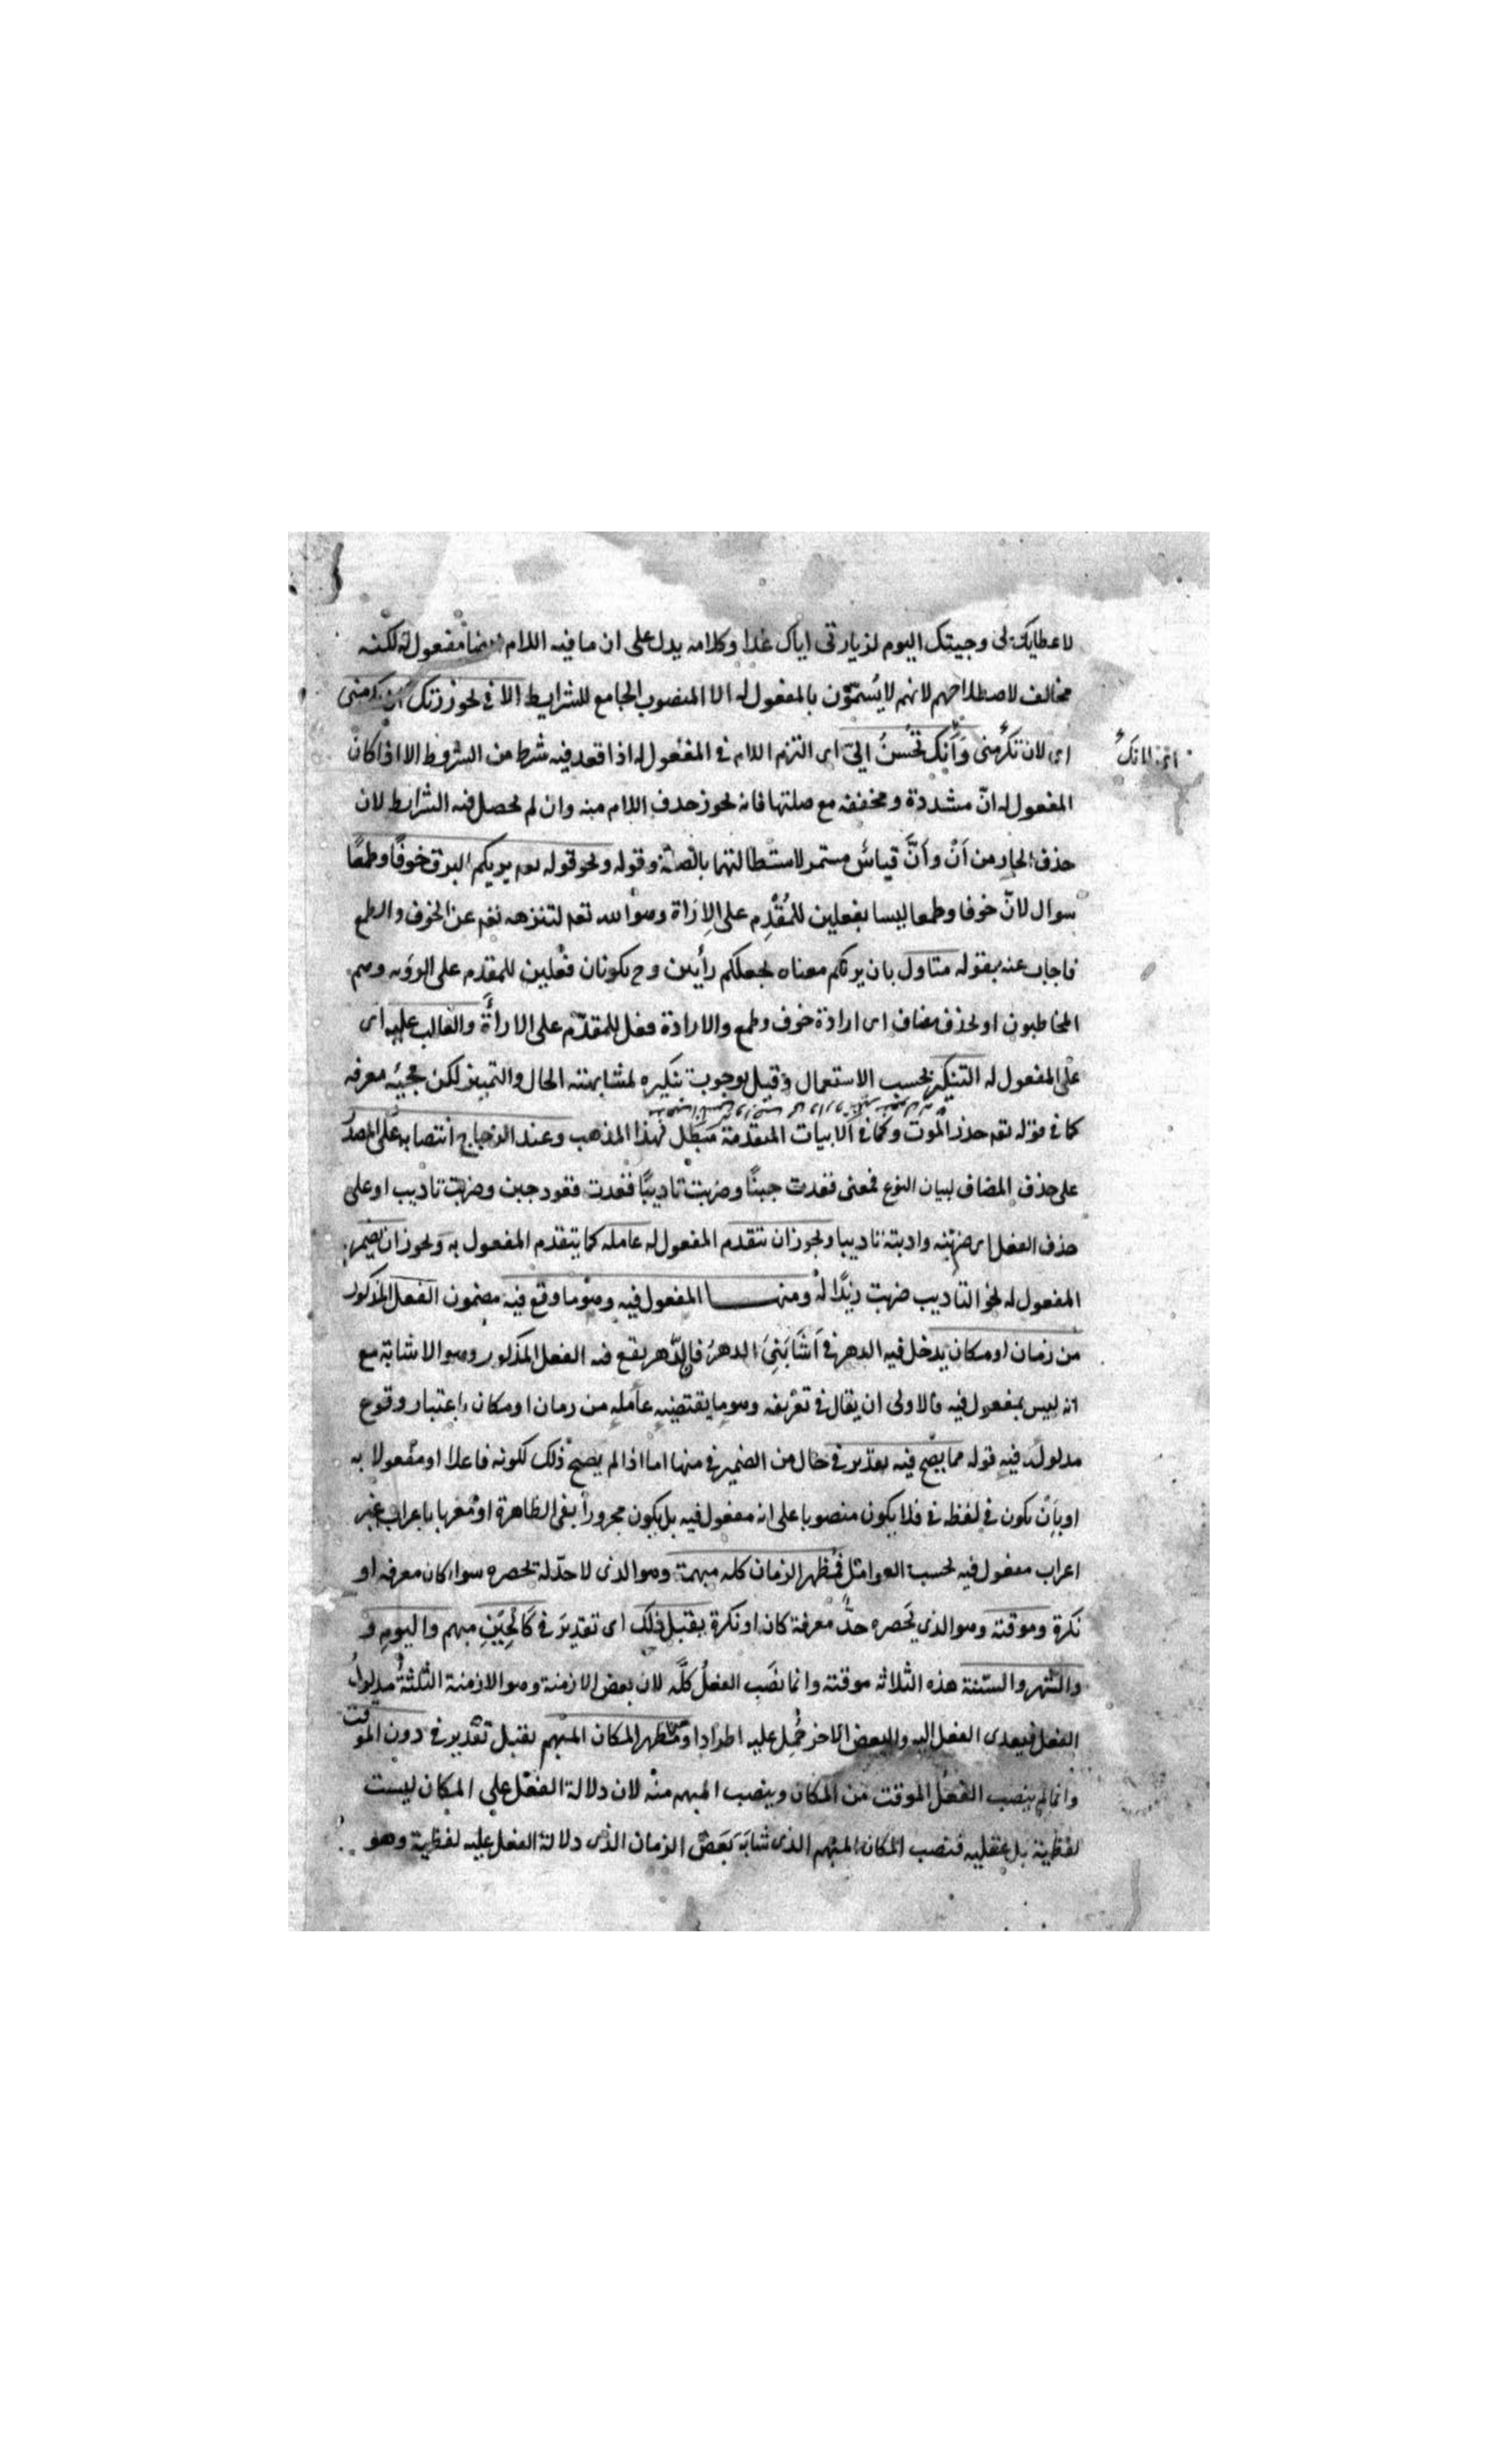 لاعطايك لى وجيتك اليوم لزيارتى اياك غدا وكلامه يدل على ان ما فيه اللام مفعول له لكنه
مخالف لاصطلاحهم لانهم لا يُسَمّون بالمفعول له الا المنصوب الجامع للشرايط الا فى نحو زرتك ان تكرمنى
اى لان تكرمنى وَاَنك تُحْسنُ الىّ اى التزم اللام فى المفعول له اذا فقد فيه شرط من الشروط الا اذا كان
المفعول له انّ مشددة ومخففه مع صلتها فانه يجوز حذف اللام منه وان لم يحصل فيه الشرايط لان
حذف الجار من اَنْ واَنَّ قياسٌ مستمر لاستطالتهما بالصلة وقوله ونحو قوله تعه يريكم البرق خوفًا وطمعًا
سوال لانّ خوفا وطمعا ليسا بفعلين للمُقْدِم على الاِرَاة وهو الله تعه لتنزهه تعه عن الخوف والطمع
فاجاب عنه بقوله متاول بان يريكم معناه يجعلكم رأيين وح يكونان فعلين للمقدم على الروَيه وهم
المخاطبون او بحذف مضاف اى ارادة خوف وطمع والارادة فعل للمقدّم على الاراأة والغالب عليه اى
على المفعول له التنكير بحسب الاستعمال وقيل بوجوب تنكيره لمشابهته الحال والتمييز لكن مجيئه معرفه
كما فى قوله تعه حذر الموت وكما فى الابيات المتقدمة مُبَطل لهذا المذهب وعند الزجاج انتصابه على المصدر
على حذف المضاف لبيان النوع فمعنى قعدت جبنًا وضربت تاديبًا قعدت قعود جبن وضربت تاديب او على
حذف الفعل اى ضربته وادبته تاديبا ويجوز ان يتقدم المفعول له عامله كما يتقدم المفعول به ويجوز ان يضمر
المفعول له نحو التاديب ضربت زيدًا له ومنها المفعول فيه وهو ما وقع فيه مضمون الفعل المذكور
من زمان او مكان يدخل فيه الدهر فى اَشَابَنِىَ الدهرُ فان الدّهر يقع فيه الفعل المذكور وهو الاشابة مع
انه ليس بمفعول فيه فالاولى ان يقال فى تعريفه وهو ما يقتضيه عامله من زمان او مكان باعتبار وقوع
مدلوله فيه قوله مما يصح فيه تقدير فى حال من الضمير فى منها اما اذا لم يصح ذلك لكونه فاعلا او مفعولا به
او بَان يكون فى لفظه فى فلا يكون منصوبا على انه مفعول فيه بل يكون مجرورا بفى الظاهرة او معربا باعراب غير
اعراب مفعول فيه بحسب العوامل فظهر الزمان كله مبهمة وهو الذى لا حدّ له يحصره سواء كان معرفه او
نكرة وموقته وهو الذى يَحصره حدٌّ معرفة كان او نكرة يقبل ذلك اى تقديرَ فى كَالْحِيَنِ مبهم واليوم و
والشهر والسّنة هذه الثلاثه موقتة وانما نصَب الفعلُ كلَّه لان بعض الازمنة وهو الازمنة الثلثةُ مدلولُ
الفعل فيعدى الفعل اليه والبعض الاخر حُمِل عليه اطرادا وظهر المكان المبْهم يقبل تقدير فى دون الموقت
وانما لم ينصب الفعل الموقت من المكان وينصب المبهم منه لان دلالة الفعل على المكان ليست
لفظية بل عقليه فنصب المكان المبهم الذى شابَهَ بَعَضَ الزمان الذى دلالة الفعل عليه لفظية وهو